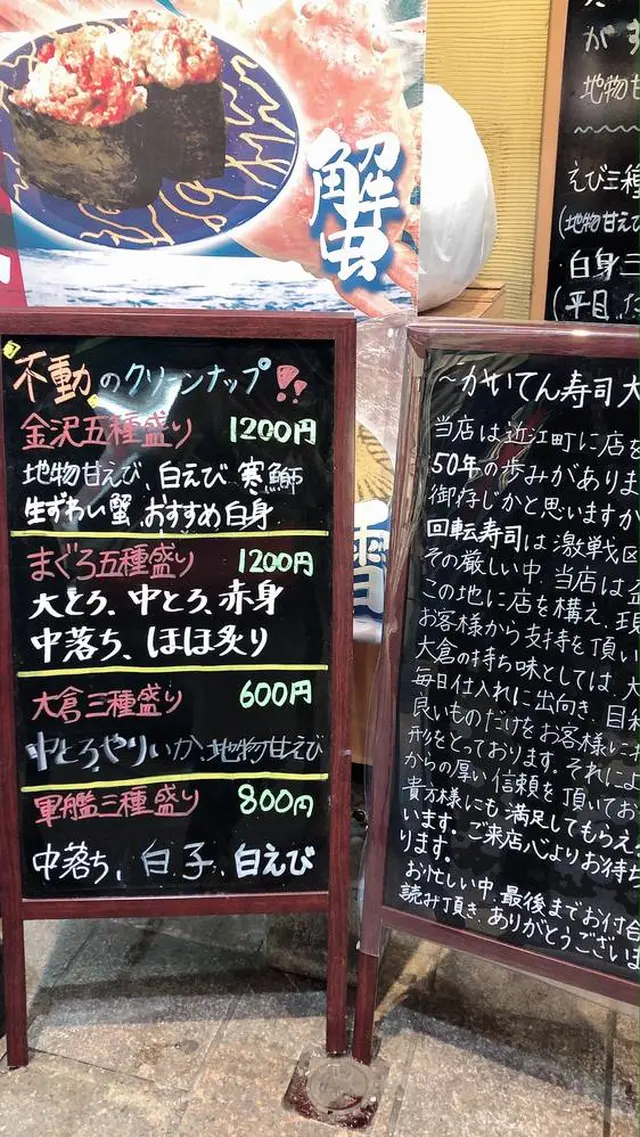 蟹
不動のクリーンナップ!!
金沢五種盛り 1200円
地物甘えび、白えび 寒鰤
生ずわい蟹 おすすめ白身
まぐろ五種盛り 1200円
大とろ、中とろ、赤身
中落ち、ほほ炙り
大倉三種盛り 600円
中とろ、やりいか、地物甘えび
軍艦三種盛り 800円
中落ち、白子、白えび
雪
〜かいてん寿司大
当店は近江町に店を
50年の歩みがありま
御存じかと思いますが
回転寿司は激戦区
その厳しい中、当店は
この地に店を構え、現
お客様から支持を頂い
大倉の持ち味としては、大
毎日仕入れに出向き、自
良いものだけをお客様に
形をとっております。それによ
からの厚い信頼を頂いてお
貴方様にも満足してもらえ
います。ご来店心よりお待ち
ります。
お忙しい中、最後までお付合
読み頂き、ありがとうございま
がす
地物甘
えび三種
(地物甘えび
白身三
(平目、た